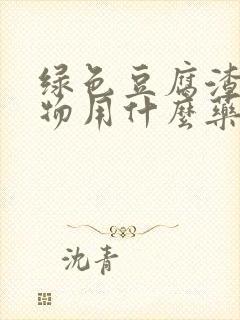 绿色豆腐渣
物用什麼藥
沈青